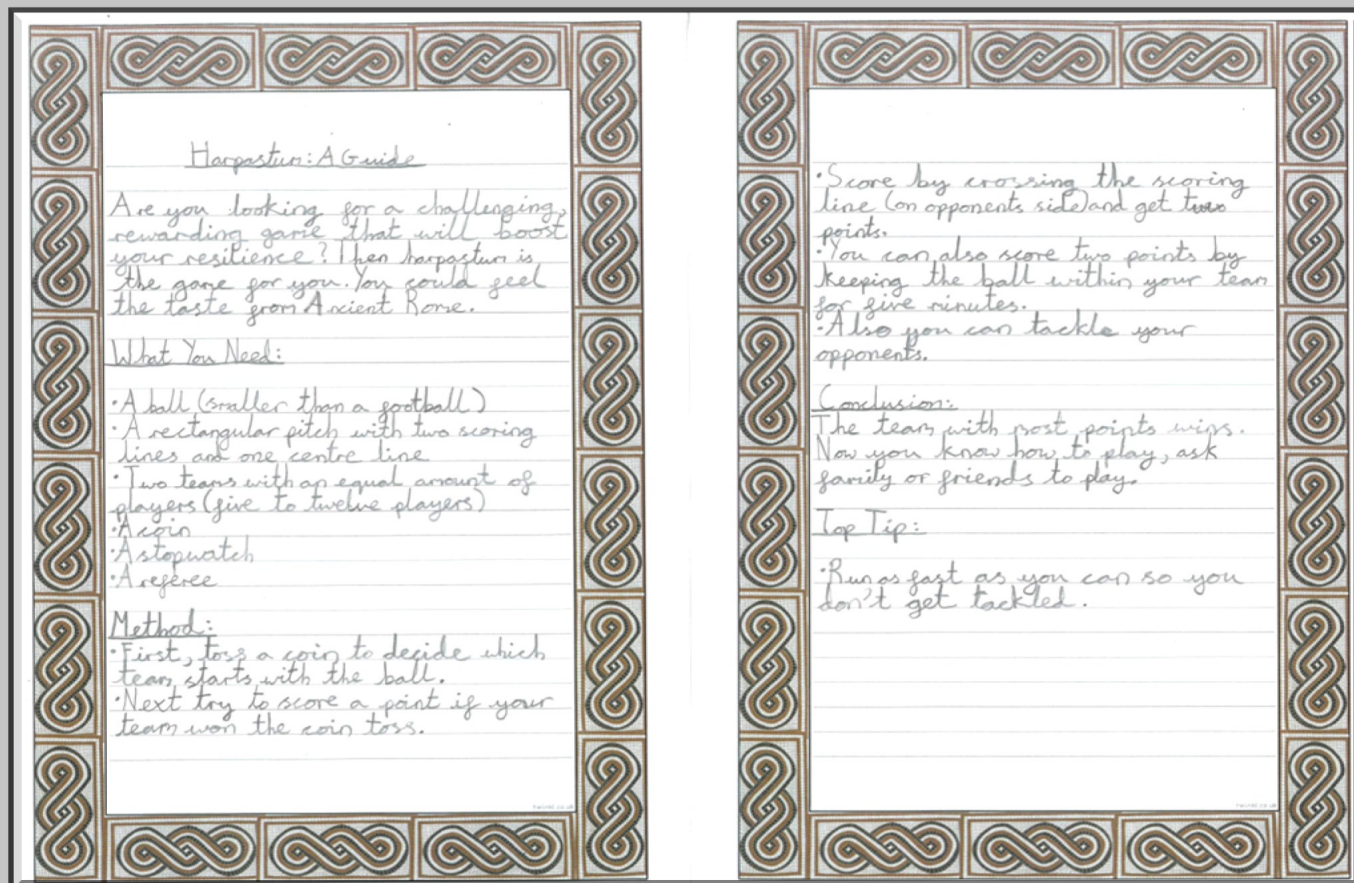 Harpastum: A Guide
Are you looking for a challenging,
rewarding game that will boost
your resilience? Then harpastum is
the game for you. You could feel
the taste from Ancient Rome.
What You Need:
•A ball (smaller than a football)
•A rectangular pitch with two scoring
lines and one centre line
•Two teams with an equal amount of
players (five to twelve players)
•A coin
•A stopwatch
•A referee
Method:
•First, toss a coin to decide which
team starts with the ball.
•Next try to score a point if your
team won the coin toss.
•Score by crossing the scoring
line (on opponents side) and get two
points.
•You can also score two points by
keeping the ball within your team
for five minutes.
•Also you can tackle your
opponents.
Conclusion:
The team with most points wins.
Now you know how to play, ask
family or friends to play.
Top Tip:
•Run as fast as you can so you
don't get tackled.